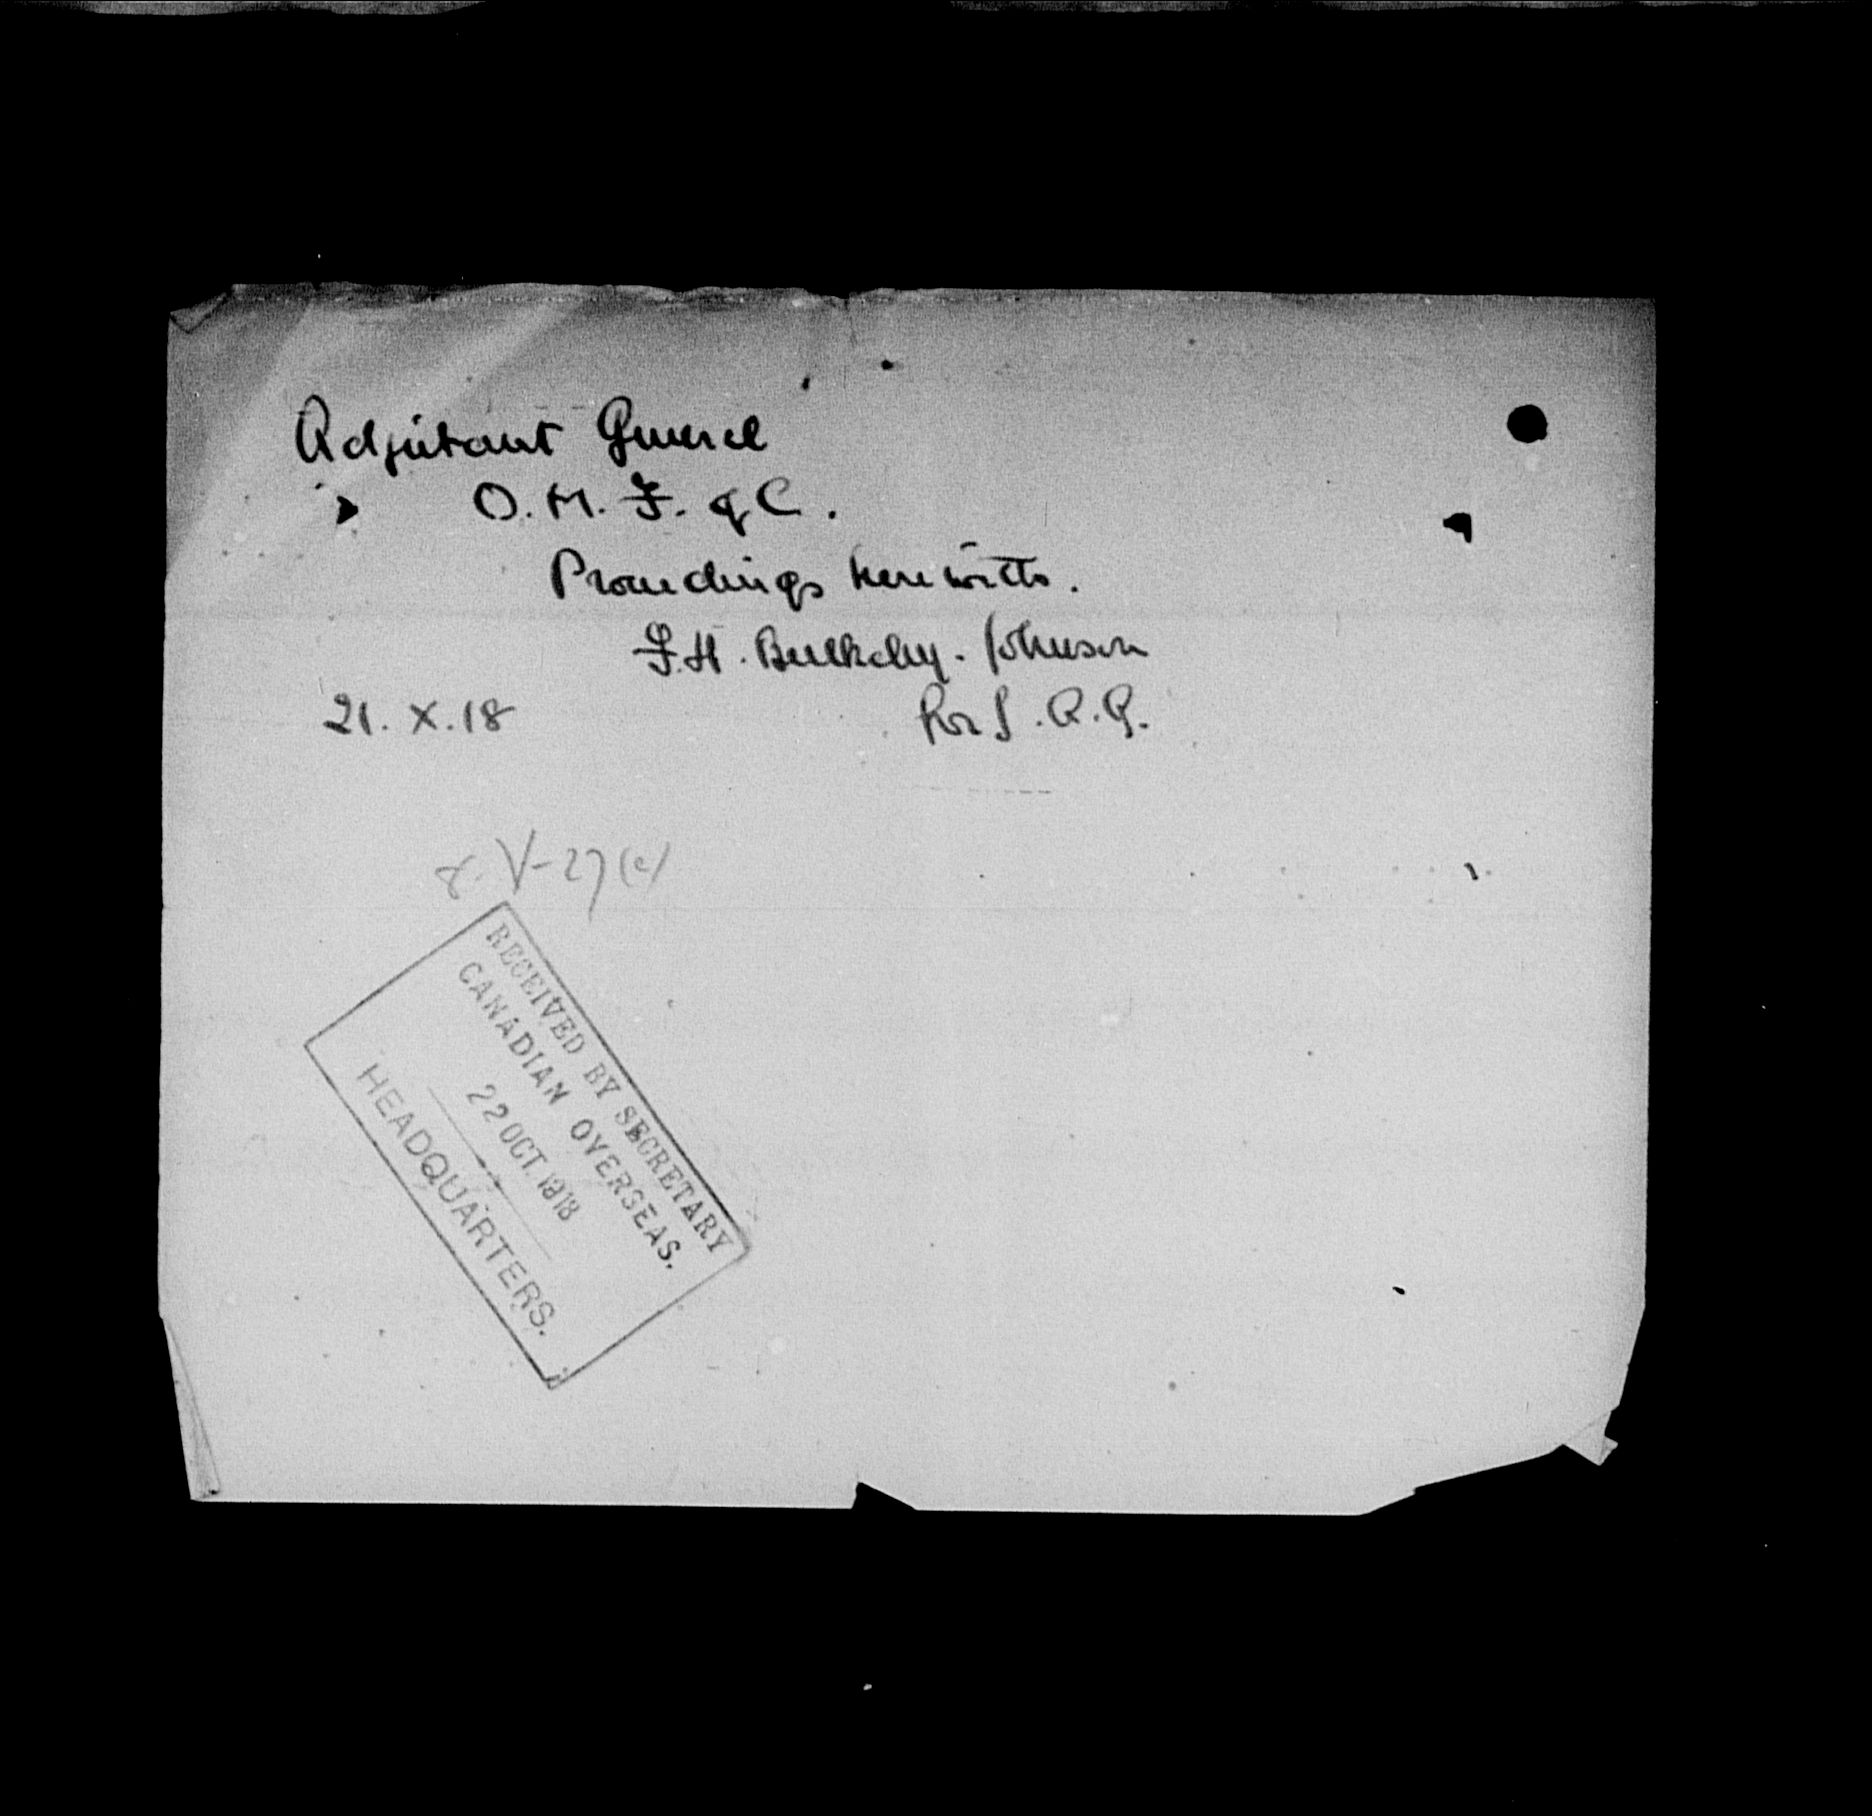 Adjutant General
O. M. F. of C.
Proceedings herewith.
F. H. Bulkeley-Johnson
21. X. 18
for J. A. G.
V-27(c)
RECEIVED BY SECRETARY
CANADIAN OVERSEAS.
22 OCT. 1918
HEADQUARTERS.